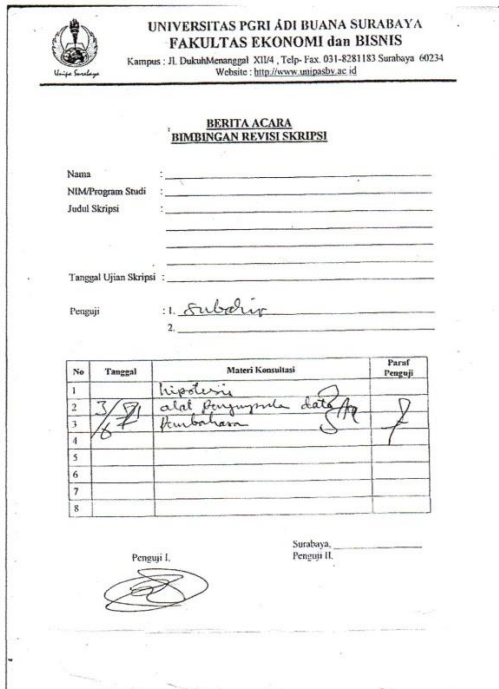 UNIVERSITAS PGRI ADI BUANA SURABAYA
FAKULTAS EKONOMI dan BISNIS
Kampus : Jl. DukuhMenanggal XII/4 , Telp- Fax. 031-8281183 Surabaya 60234
Website : http://www.unipasby.ac id
Unipa Surabaya
BERITA ACARA
BIMBINGAN REVISI SKRIPSI
Nama :
NIM/Program Studi :
Judul Skripsi :
Tanggal Ujian Skripsi :
Penguji : 1.
2.
No Tanggal Materi Konsultasi Paraf Penguji
1 hipotesis
2 alat data
3
4
5
6
7
8
Surabaya,
Penguji I. Penguji II.